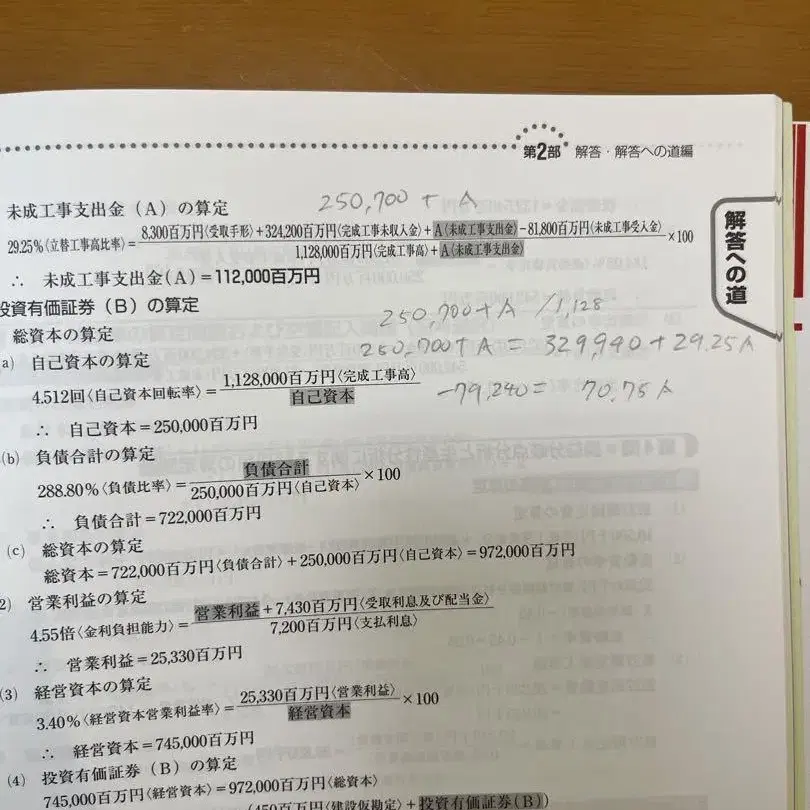 第2部 解答・解答への道編
解答への道
250,700 + A
未成工事支出金（A）の算定
29.25%〈立替工事高比率〉＝8,300百万円〈受取手形〉＋324,200百万円〈完成工事未収入金〉＋A〈未成工事支出金〉－81,800百万円〈未成工事受入金〉
1,128,000百万円〈完成工事高〉＋A〈未成工事支出金〉
×100
∴ 未成工事支出金(A)＝112,000百万円
投資有価証券（B）の算定
250,700+A /1,128
総資本の算定
250,700+A = 329,940 + 29.25A
a) 自己資本の算定
-79,240 = 70.75A
4.512回〈自己資本回転率〉＝1,128,000百万円〈完成工事高〉
自己資本
∴ 自己資本＝250,000百万円
(b) 負債合計の算定
288.80%〈負債比率〉＝負債合計
250,000百万円〈自己資本〉
×100
∴ 負債合計＝722,000百万円
(c) 総資本の算定
総資本＝722,000百万円〈負債合計〉＋250,000百万円〈自己資本〉＝972,000百万円
2) 営業利益の算定
4.55倍〈金利負担能力〉＝営業利益＋7,430百万円〈受取利息及び配当金〉
7,200百万円〈支払利息〉
∴ 営業利益＝25,330百万円
(3) 経営資本の算定
3.40%〈経営資本営業利益率〉＝25,330百万円〈営業利益〉
経営資本
×100
∴ 経営資本＝745,000百万円
(4) 投資有価証券（B）の算定
745,000百万円〈経営資本〉＝972,000百万円〈総資本〉
(450百万円〈建設仮勘定〉＋投資有価証券(B))